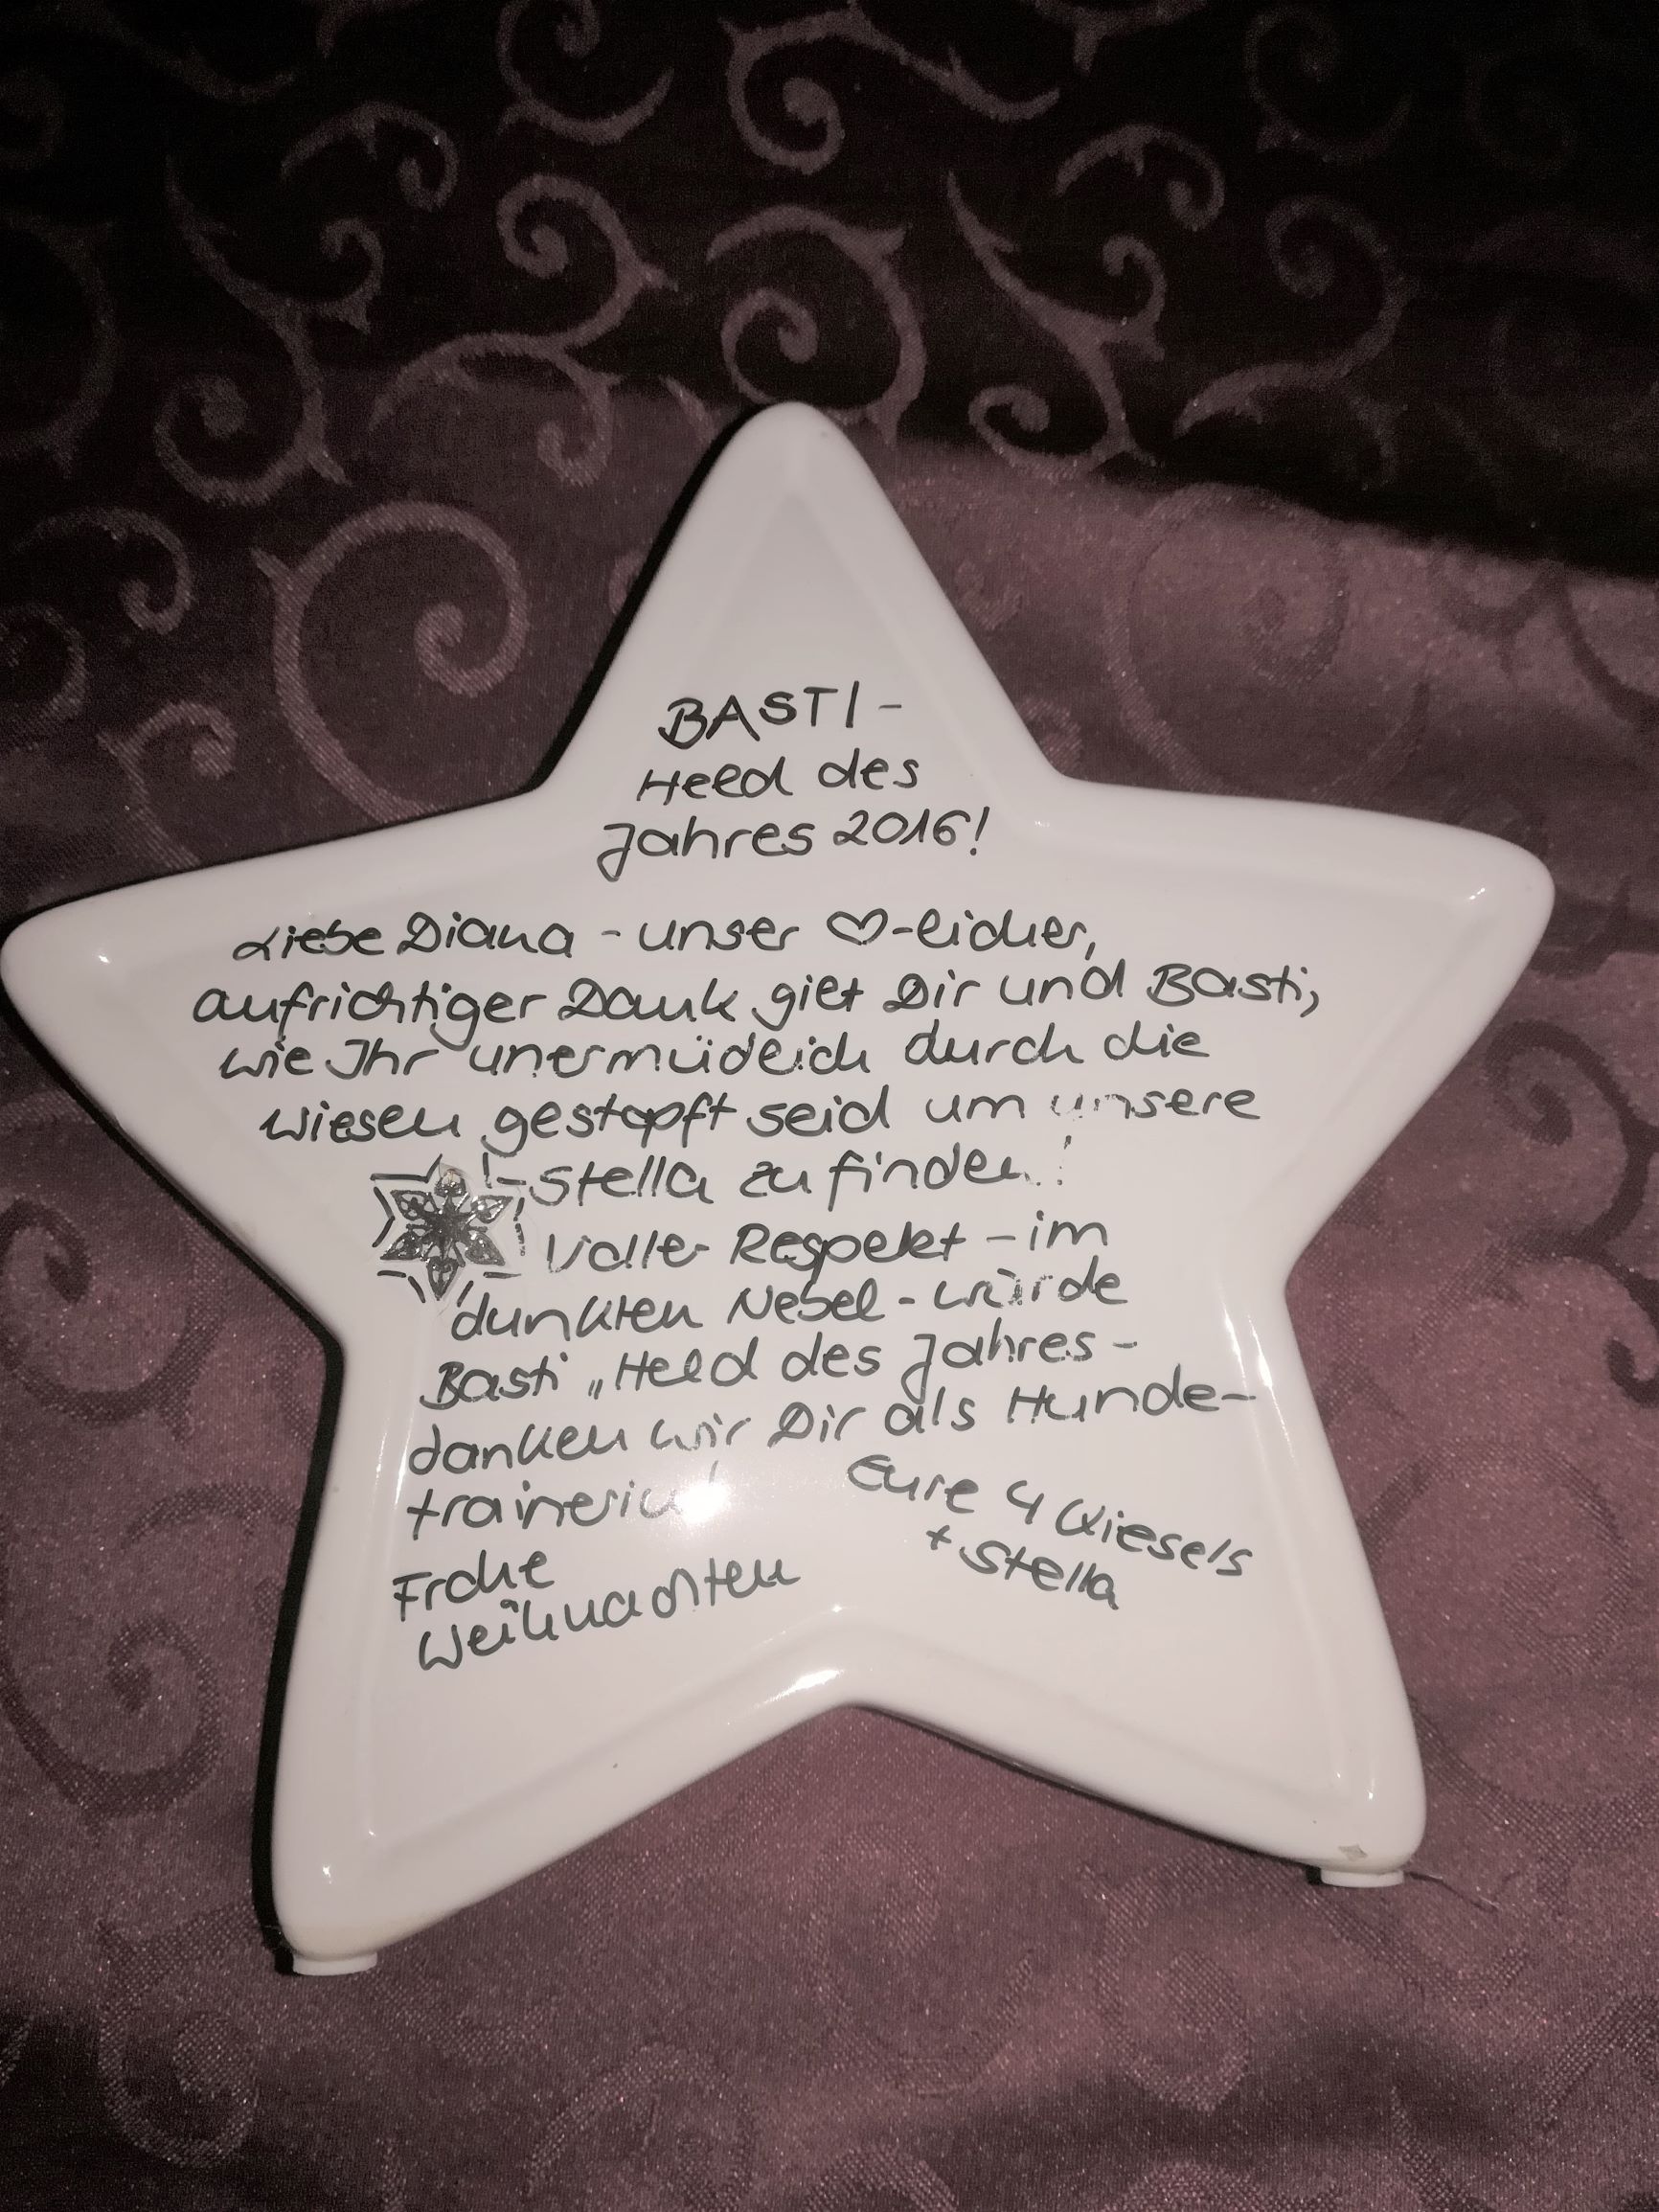 BASTI -
Held des
Jahres 2016!
Liebe Diana - unser ♡-licher,
aufrichtiger Dank gilt Dir und Basti,
wie Ihr unermüdlich durch die
Wiesen gestapft seid um unsere
Stella zu finden!
Voller Respekt - im
dunklen Nebel - würde
Basti „Held des Jahres -
danken wir Dir als Hunde-
trainerin!
Frohe
Weihnachten
Eure 4 Wiesels
+ Stella